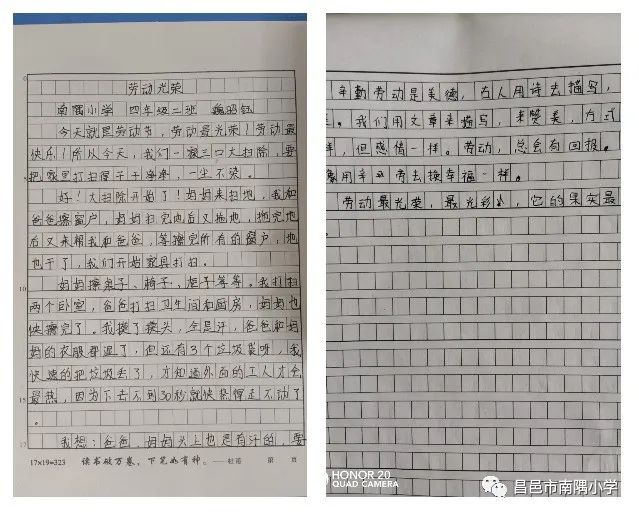 劳动光荣
南隅小学 四年级二班 魏昭钰
今天就是劳动节,劳动最光荣!劳动最
快乐!所从今天,我们一家三口大扫除,要
把家里打扫得干干净净,一尘不染。
好!大扫除开始了!妈妈来扫地,我和
爸爸擦窗户,妈妈扫完地后又拖地,拖完地
后又来帮我和爸爸,等擦完所有的窗户,地
也干了,我们开始家具打扫。
妈妈擦桌子、椅子、柜子等等。我打扫
两个卧室,爸爸打扫卫生间和厨房,妈妈也
快擦完了。我摸了摸头,全是汗,爸爸和妈
妈的衣服都湿了,但还有3个垃圾袋呀,我
快速的把垃圾丢了,才知道外面的工人才会
最热,因为下去不到30秒就快晃得走不动了
。
我想:爸爸,妈妈头上也是有汗的,要
17×19=323 读书破万卷,下笔如有神。——杜甫 第 页
辛勤劳动是美德,古人用诗去描写,
。我们用文章来描写,来赞美,方式
样,但感情一样。劳动,总会有回报。
用辛劳去换幸福一样。
劳动最光荣,最光彩,它的果实最
。
HONOR 20
QUAD CAMERA
昌邑市南隅小学